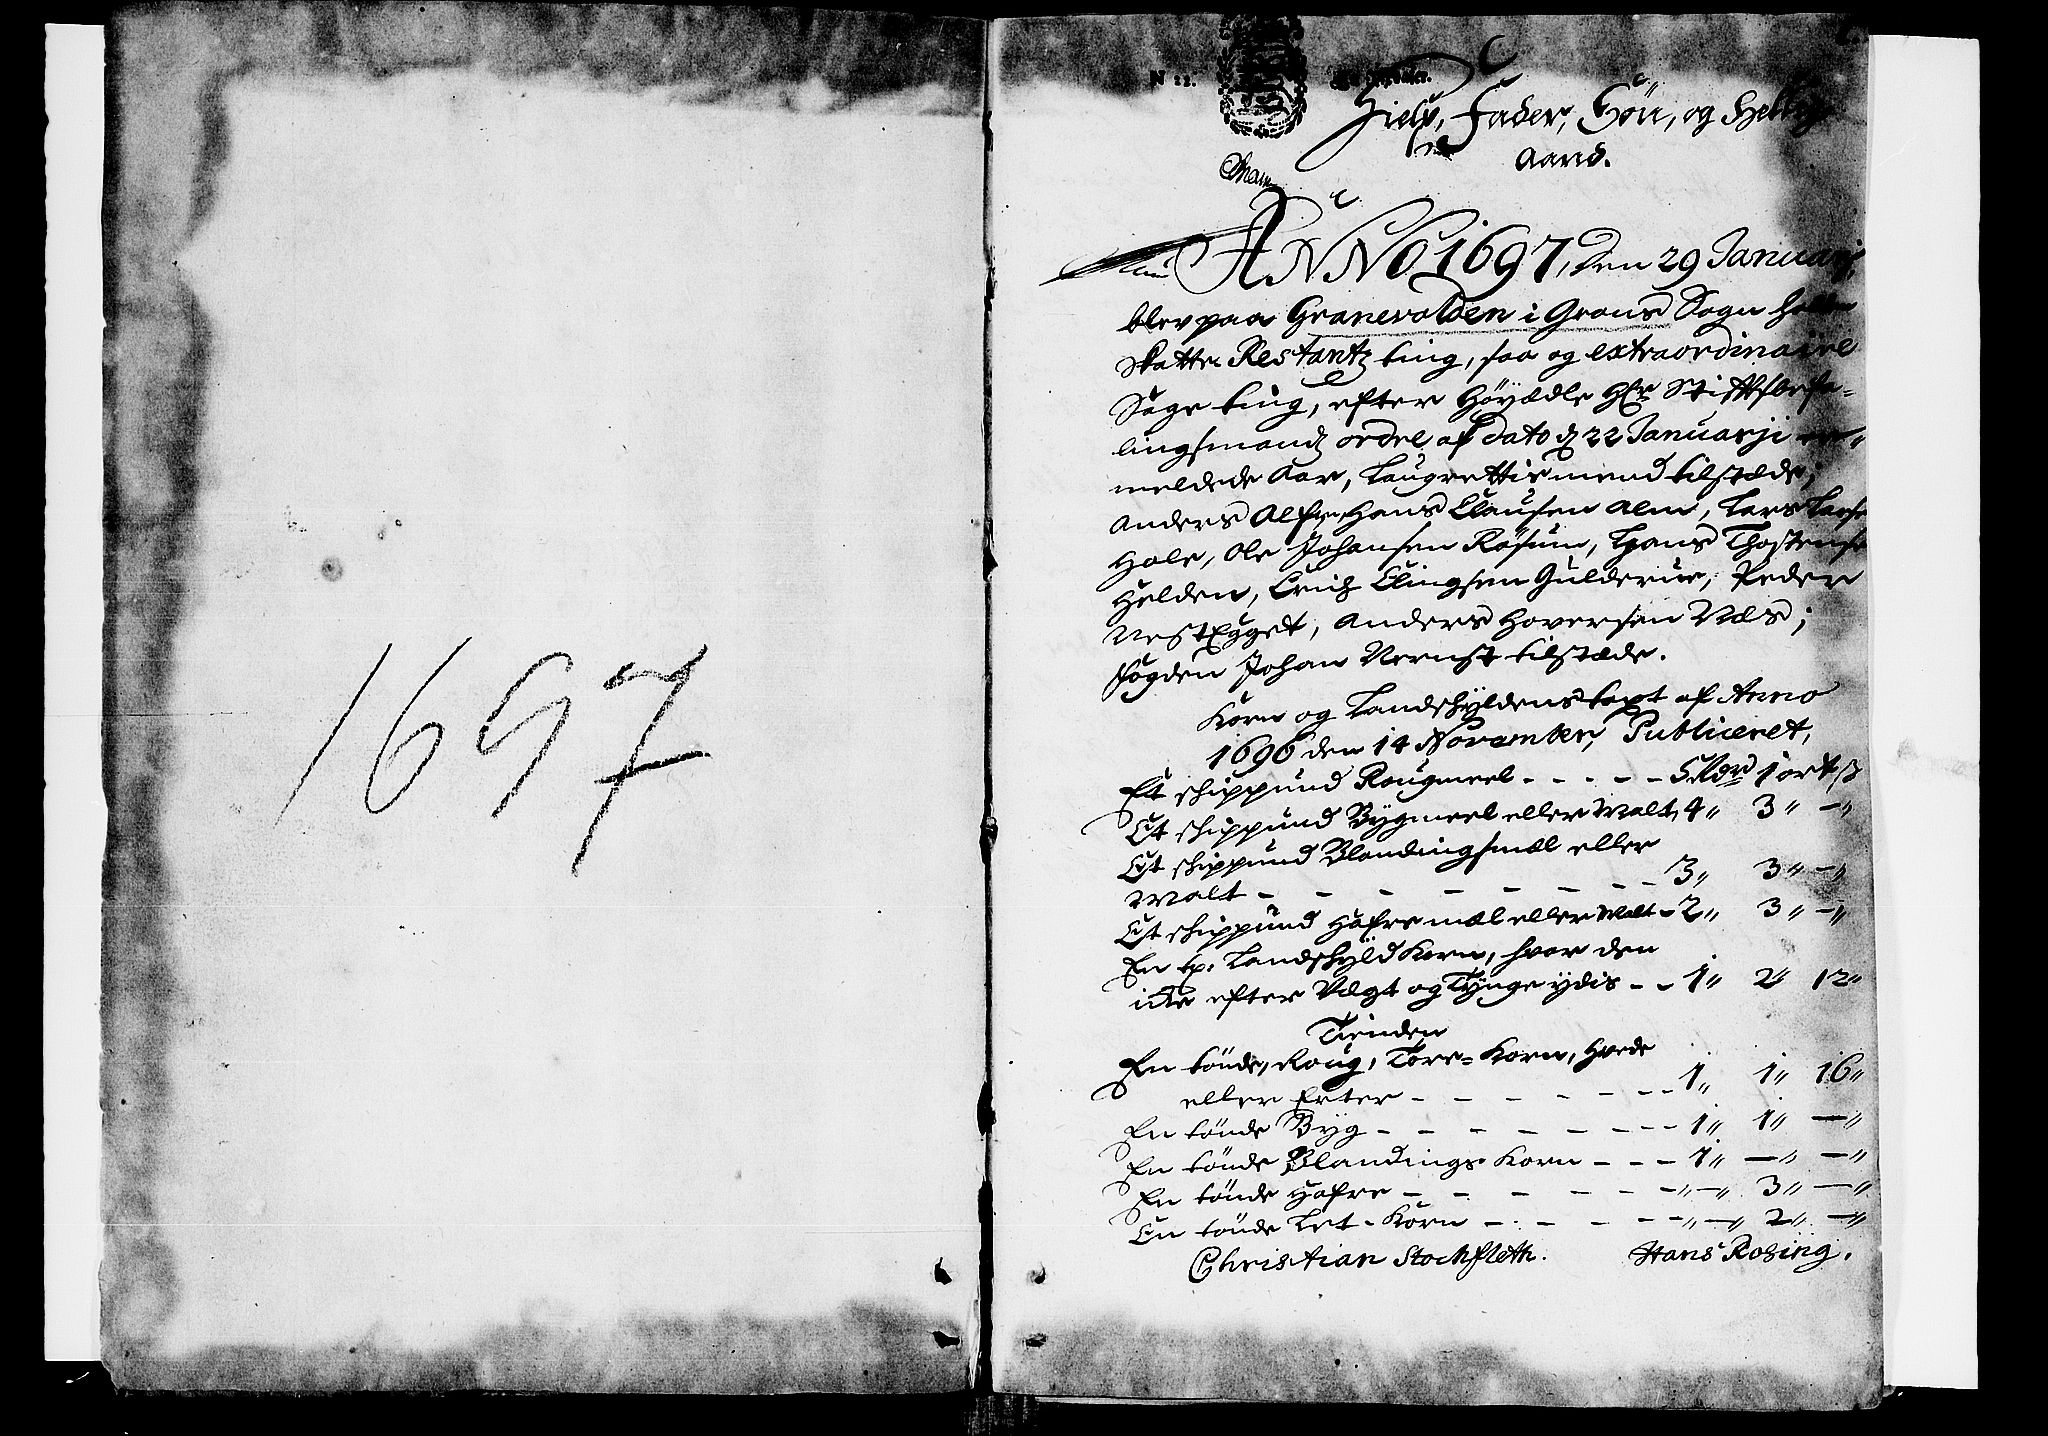 1697
N 22.
Hielp, Fader, Sön, og Hellig
Aand.
ANNO 1697, Den 29 Januarij,
blev paa Granevolden i Grans Sogn holden
Skatte Restantz ting, saa og extraordinaire
Sage ting, efter Höyædle Hr Stiftsbefa-
lingsmands ordre af dato d 22 Januarji
meldede Aar, Laugrettis mend tilstæde;
Anders Alfs, Hans Clausen Alm, Lars Larse
Hole, Ole Johansen Röÿsum, Hans Thostense
Helden, Erich Elingsen Gulderue, Peder
NestEgget, Anders Hoversen Næs;
fogden Johan Vernst tilstæde.
Korn og Landskÿldens taxt af Anno
1696 den 14 November, Publiceret,
Et skippund Rougmeel - - - - - 5 Rdr 1 ort ß
Et skippund Bÿgmeel eller Malt, 4 " 3 " - "
Et skippund Blandingsmæl eller
Malt - - - - - - - - 3 " 3 " - "
Et skippund Hafremæl eller Malt - 2 " 3 " - "
En tp. Landskÿld Korn, hvor den
icke efter Vægt og Tÿnge ÿdis - - 1 " 2 " 12 "
Tienden
En tönde, Roug, Tore-Korn, Hvede
eller Erter - - - - - - - 1 " 1 " 16 "
En tönde Bÿg - - - - - - - - 1 " 1 " - "
En tönde Blandings-Korn - - - 1 " - " - "
En tönde Hafre - - - - - - " - " 3 " - "
En tönde Let-Korn - - - - - " - " 2 " - "
Christian Stockfleth. Hans Rosing.